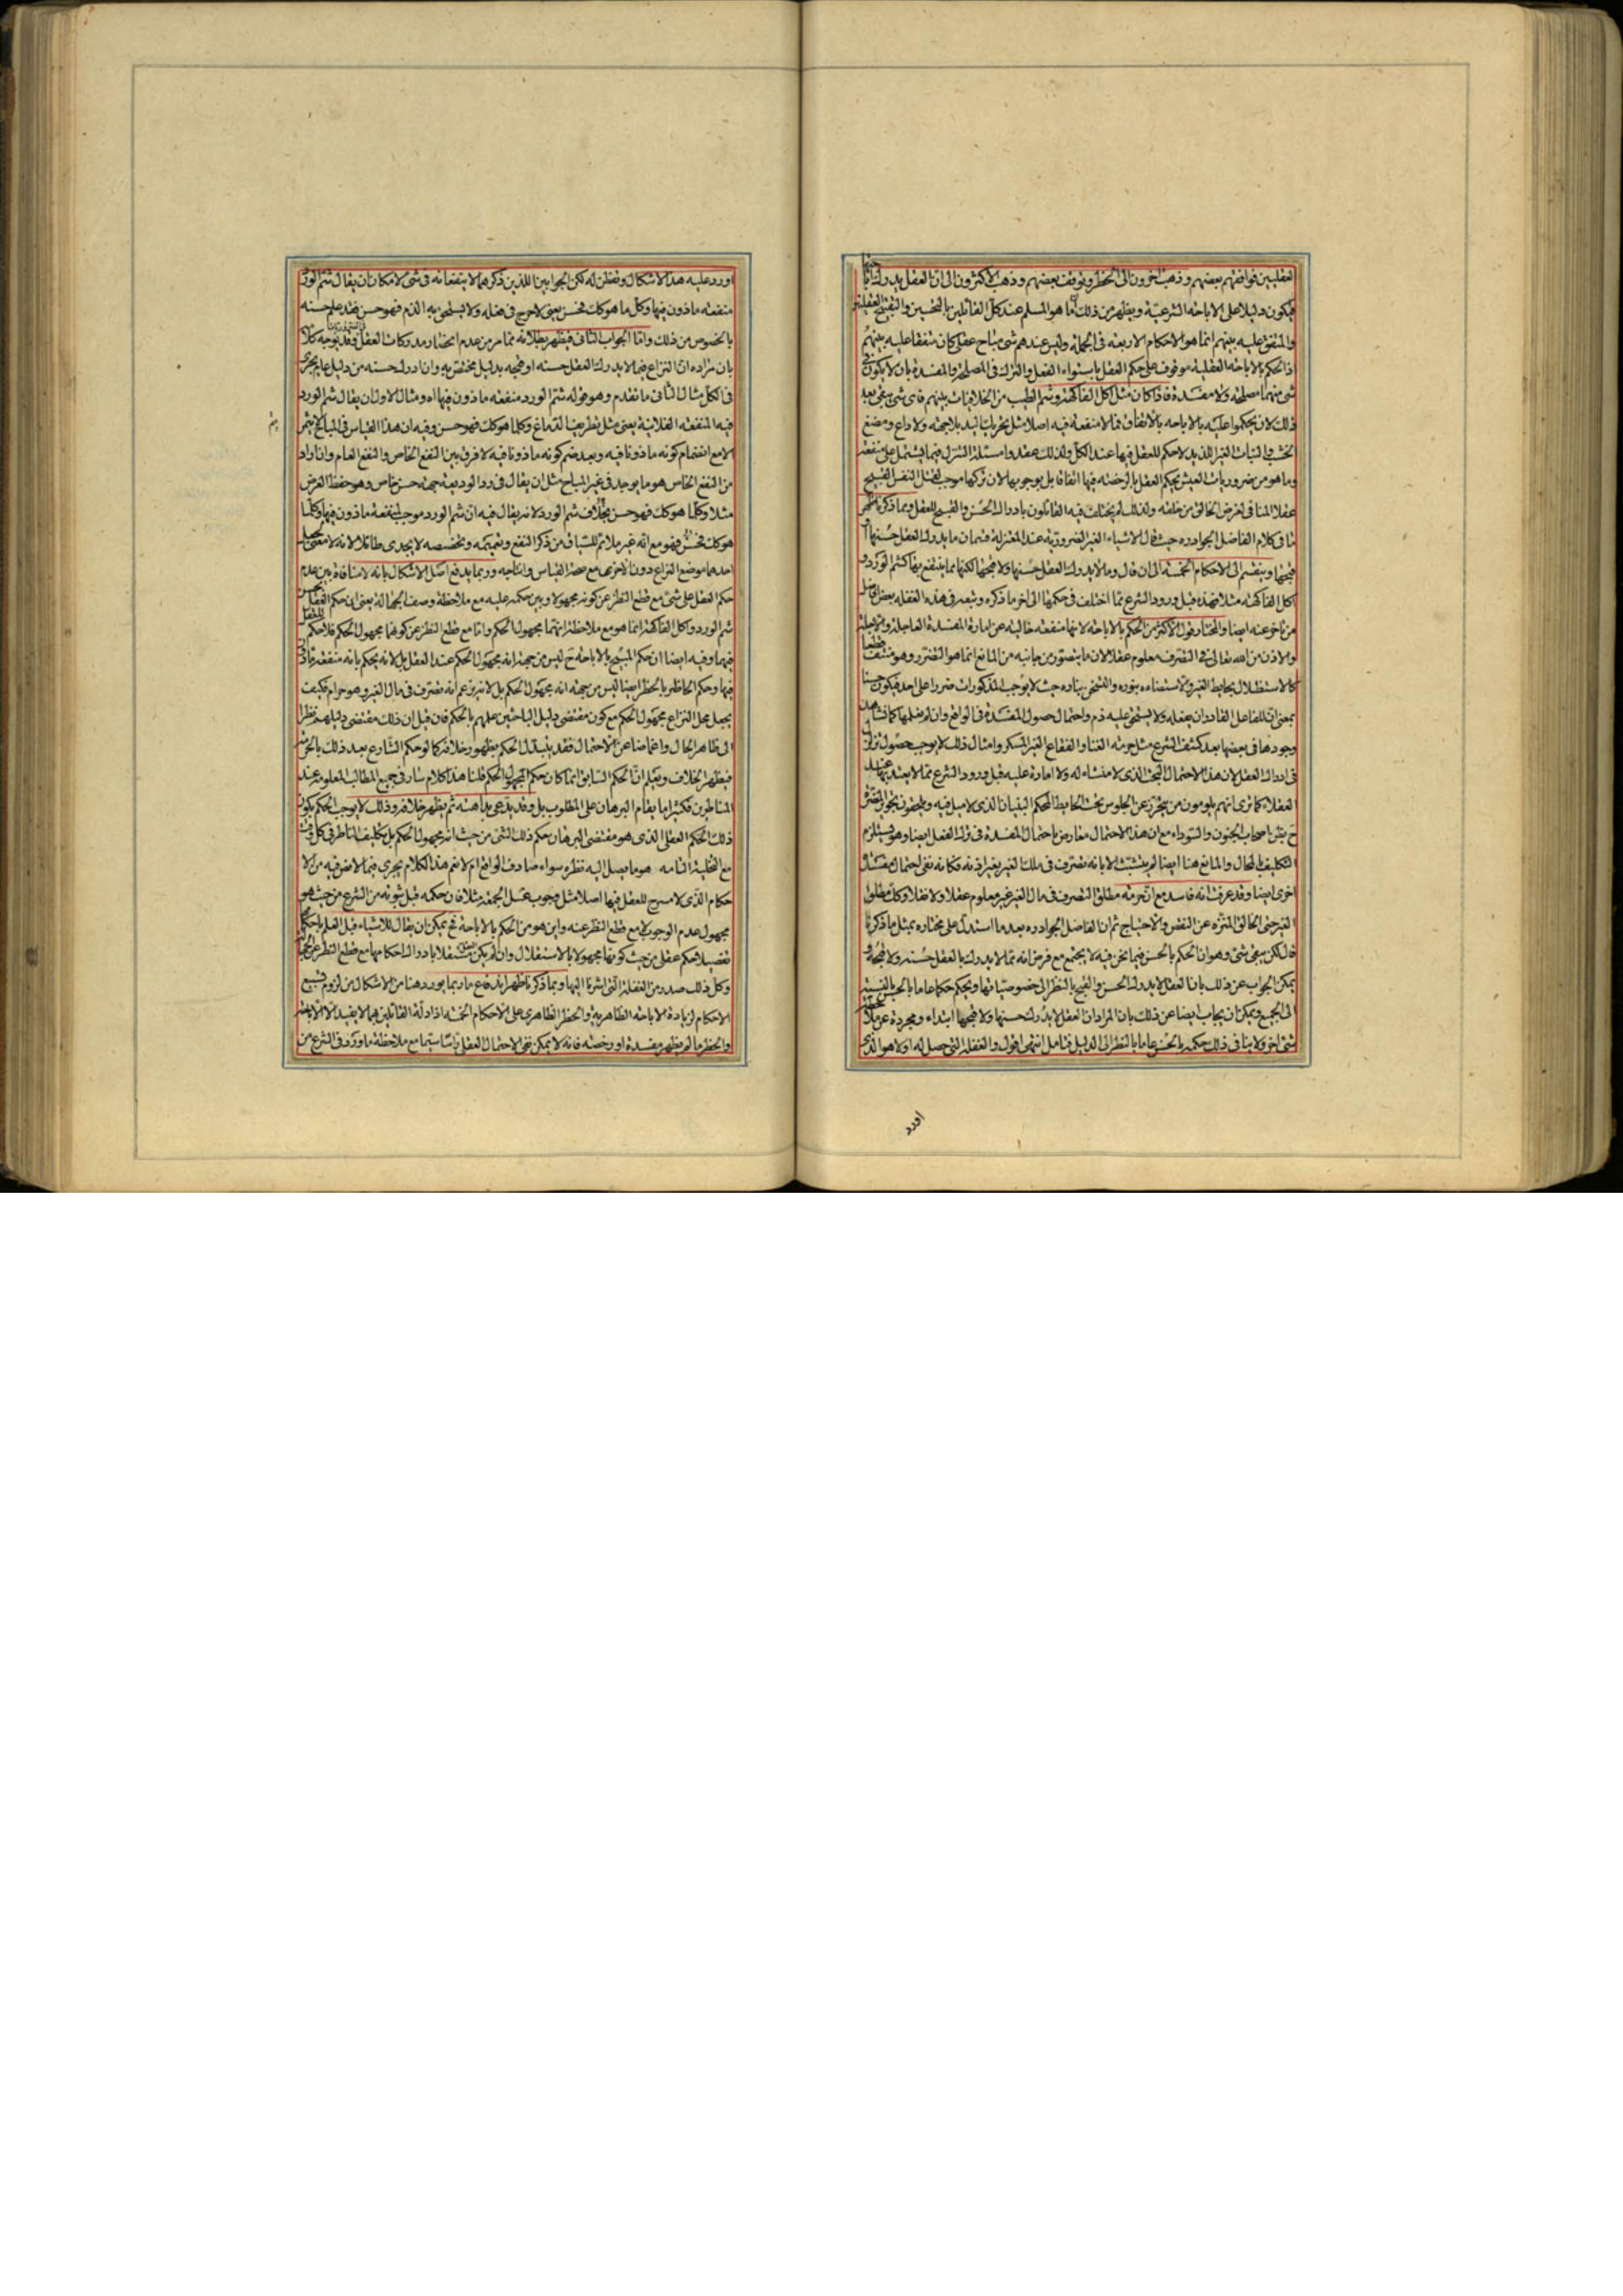 العقليين فوافقهم بعضهم وذهب آخرون الى الحظر وتوقف بعضهم وذهب الاكثرون الى ان العقل يدرك
فيكون دليلا على الاباحة الشرعية ويظهر من ذلك ما هو المسلم عند كل القائلين بالتحسين والتقبيح العقليين
والمتفق عليه بينهم انما هو الاحكام الاربعة في الجملة وليس عندهم شئ مباح عقلى كان متفقا عليه بينهم
اذ الحكم بالاباحة العقلية موقوف على حكم العقل باستواء الفعل والترك في المصلحة والمفسدة بان لا يكون في
شئ منهما مصلحة ولا مفسدة فاذا كان مثل اكل الفاكهة وشم الطيب من الخلافيات بينهم فاى شئ يبقى بعد
ذلك لان يحكموا عليه بالاباحة بالاتفاق فما لا منفعة فيه اصلا مثل تحريك اليد بلا جهة ولا داع ومضغ
الخشب والنبات الغير اللذيذ لا حكم للعقل فيها عند الكل ولذلك عقدوا مسئلة النزل فيما يشتمل على منفعة
وما هو من ضروريات العيش يحكم العقل بالرخصة فيها اتفاقا بل بوجوبها لان تركها موجب لقتل النفس القبيح
عقلا المنافى لغرض الخالق من خلقته ولذلك لم يختلف فيه القائلون بادراك الحسن والقبح للعقل ومما ذكرنا ظهر
ما فى كلام الفاضل الجواد ره حيث قال الاشياء الغير الضرورية عند المعتزلة قسمان ما يدرك العقل حسنها او
قبحها وينقسم الى الاحكام الخمسة الى ان قال وما لا يدرك العقل حسنها ولا قبحها لكنها مما ينتفع بها كشم الورد و
اكل الفاكهة مثلا فهذه قبل ورود الشرع مما اختلف في حكمها الى اخر ما ذكره وتبعه في هذه الغفلة بعض افاضل
من تاخر عنه ايضا والمختار قول الاكثر من الحكم بالاباحة لانها منفعة خالية عن امارة المفسدة العاجلة والاجلة
والاذن من الله تعالى في التصرف معلوم عقلا لان ما يتصور من جانبه من المانع انما هو التضرر وهو منتف قطعا
كالاستظلال بحايط الغير والاستضاءه بنوره والتسخن بناره حيث لا يوجب المذكورات ضررا على احد فيكون حسنا
بمعنى ان للفاعل القادر ان يفعله ولا يستحق عليه ذم واحتمال حصول المفسدة في الواقع وان لم نعلمها كما نشاهد
وجودها في بعضها بعد كشف الشرع مثل حرمة الغنا والفقاع الغير المسكر وامثال ذلك لا يوجب حصول تزلزل
فى ادراك العقل لان هذا الاحتمال البحت الذى لا منشاء له ولا امارة عليه قبل ورود الشرع مما لا يعتد بها عند
العقلاء كما ترى انهم يلومون من يتحرز عن الجلوس تحت الحايط المحكم البنيان الذى لا ميل فيه ويلحقونه بتجويز الضرر
ح يظن باصحاب الجنون والسوداء مع ان هذا الاحتمال معارض باحتمال المفسدة في ترك الفعل ايضا وهو يستلزم
التكليف بالمحال والمانع هنا ايضا لم يتشبث الا بانه تصرف في ملك الغير بغير اذنه فكانه نفى احتمال مفسدة
اخرى ايضا وقد عرفت انه فاسد مع ان حرمة مطلق التصرف في مال الغير غير معلوم عقلا ولا نقلا وكذا مطلق
الغير حتى الخالق المنزه عن النقص والاحتياج ثم ان الفاضل الجواد ره بعد ما استدل على مختاره بمثل ما ذكرنا
قال لكن يبقى شئ وهو ان الحكم بالحسن فيما نحن فيه لا يجتمع مع فرض انه مما لا يدرك بالعقل حسنه ولا قبحه و
يمكن الجواب عن ذلك بان العقل لا يدرك الحسن والقبح بالنظر الى خصوصياتها ويحكم حكما عاما بالحسن بالنسبة
الى الجميع ويمكن ان يجاب ايضا عن ذلك بان المراد ان العقل لا يدرك حسنها ولا قبحها ابتداء ومجردة عن ملاحظة
شئ اخر ولا ينافى ذلك حكمه بالحسن عاما بالنظر الى الدليل فتامل انتهى اقول والغفلة التى حصل له اولا هو الذى
اورد
اورد عليه هذا الاشكال وتفطن له لكن الجوابين اللذين ذكرهما لا ينفعانه فى شئ لامكان ان يقال شم الورد
منفعة ماذون فيها وكل ما هو كك فحسن بمعنى لا حرج في فعله ولا يستحق به الذم فهو حسن فقد علم حسنه
بالخصوص من ذلك واما الجواب الثانى فيظهر بطلانه مما مر من عدم انحصار مدركات العقل وقد يوجه كلامه
بان مراده ان النزاع فيما لا يدرك العقل حسنه او قبحه بدليل مختص به وان ادرك حسنه من دليل عام يجرى
فى الكل مثال الثانى ما تقدم وهو قوله شم الورد منفعة ماذون فيها اه ومثال الاول ان يقال شم الورد
فيه المنفعة الفلانية يعنى مثل تطريب الدماغ وكلما هو كك فهو حسن وفيه ان هذا القياس فى المباح لا يتم
الا مع انضمام كونه ماذونا فيه وبعد ضم كونه ماذونا فيه لا فرق بين النفع الخاص والنفع العام وان اراد
من النفع الخاص هو ما يوجد فى غير المباح مثل ان يقال فى رد الوديعة جهة حسن خاص وهو حفظ العرض
مثلا وكلما هو كك فهو حسن بخلاف شم الورد لانه يقال فيه ان شم الورد موجب لمنفعة ماذون فيها وكلما
هو كك فحسن فهو مع انه غير ملائم للسياق من ذكر النفع وتعميمه وتخصيصه لا يجدى طائلا لانه لا معنى لجعل
احدهما موضع النزاع دون الاخر مع صحة القياس وانتاجه وربما يدفع اصل الاشكال بانه لا منافاة بين عدم
حكم العقل على شئ مع قطع النظر عن كونه مجهولا وبين حكمه عليه مع ملاحظة وصف الجهالة يعنى ان حكم العقل بحسن
شم الورد واكل الفاكهة انما هو مع ملاحظة انهما مجهولا الحكم واما مع قطع النظر عن كونهما مجهول الحكم فلا حكم للعقل
فيهما وفيه ايضا ان حكم المبيح بالاباحة ح ليس من جهة انه مجهول الحكم عند العقل بل لانه يحكم بانه منفعة ماذون
فيها وحكم الحاظر بالحظر ايضا ليس من جهة انه مجهول الحكم بل لانه يزعم انه تصرف فى مال الغير وهو حرام فكيف
يجعل محل النزاع مجهول الحكم مع كون مقتضى دليل الباحثين علمهم بالحكم فان قيل ان ذلك مقتضى دليلهم نظرا
الى ظاهر الحال واغماضا عن الاحتمال فقد يتبدل الحكم بظهور خلافه كما لو حكم الشارع بعد ذلك بالحرمة
فيظهر الخلاف ويعلم ان الحكم السابق انما كان حكم المجهول الحكم قلنا هذا كلام سار في جميع المطالب المعلومة عند
المناظرين فكثيرا ما يقام البرهان على المطلوب بل وقد يدعى بداهته ثم يظهر خلافه وذلك لا يوجب الحكم بكون
ذلك الحكم العقلى الذى هو مقتضى البرهان حكم ذلك الشئ من حيث انه مجهول الحكم بل تكليف الناظر فى كل وقت
مع التخلية التامة هو ما يصل اليه نظره سواء صادف الواقع ام لا نعم هذا الكلام يجرى فيما لا نص فيه من الا
حكام الذى لا مسرح للعقل فيها اصلا مثل وجوب غسل الجمعة مثلا فان حكمه قبل ثبوته من الشرع من حيث هو
مجهول عدم الوجوب لا مع قطع النظر عنه واين هو من الحكم بالاباحة نعم يمكن ان يقال للاشياء قبل العلم باحكامها
تفصيلا حكم عقلى من حيث كونها مجهولا بالاستقلال وان لم يكن العقل مستقلا بادراك احكامها مع قطع النظر عن
وكل ذلك صدر من الغفلة التى اشرنا اليها وبما ذكرنا ظهر اندفاع ما ربما يورد هنا من الاشكال من لزوم تسبيع
الاحكام لزيادة الاباحة الظاهرية والحظر الظاهرى على الاحكام الخمسة اذ ادلة القائلين بهما لا يفيد الا الاباحة
والحظر ما لم يظهر مفسدة او رخصة فانه لا يمكن نفى الاحتمال العقلى راسا سيما مع ملاحظة ما ورد فى الشرع من